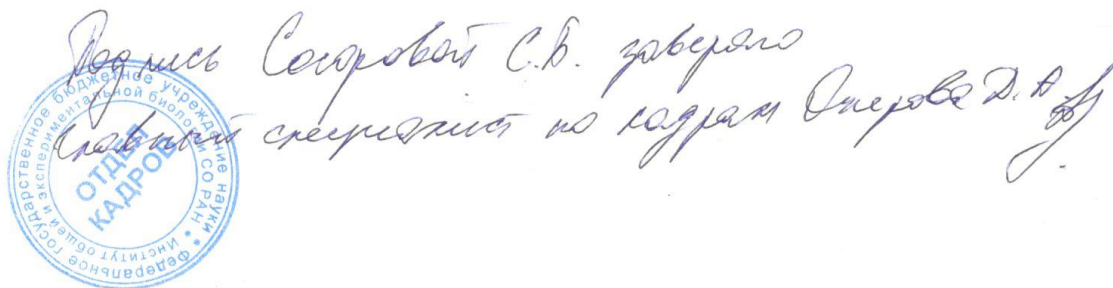 Подпись Сосоровой С.Б. заверяю
Главный специалист по кадрам Очирова Д.А.
Федеральное государственное бюджетное учреждение науки
Институт общей и экспериментальной биологии СО РАН
ОТДЕЛ
КАДРОВ